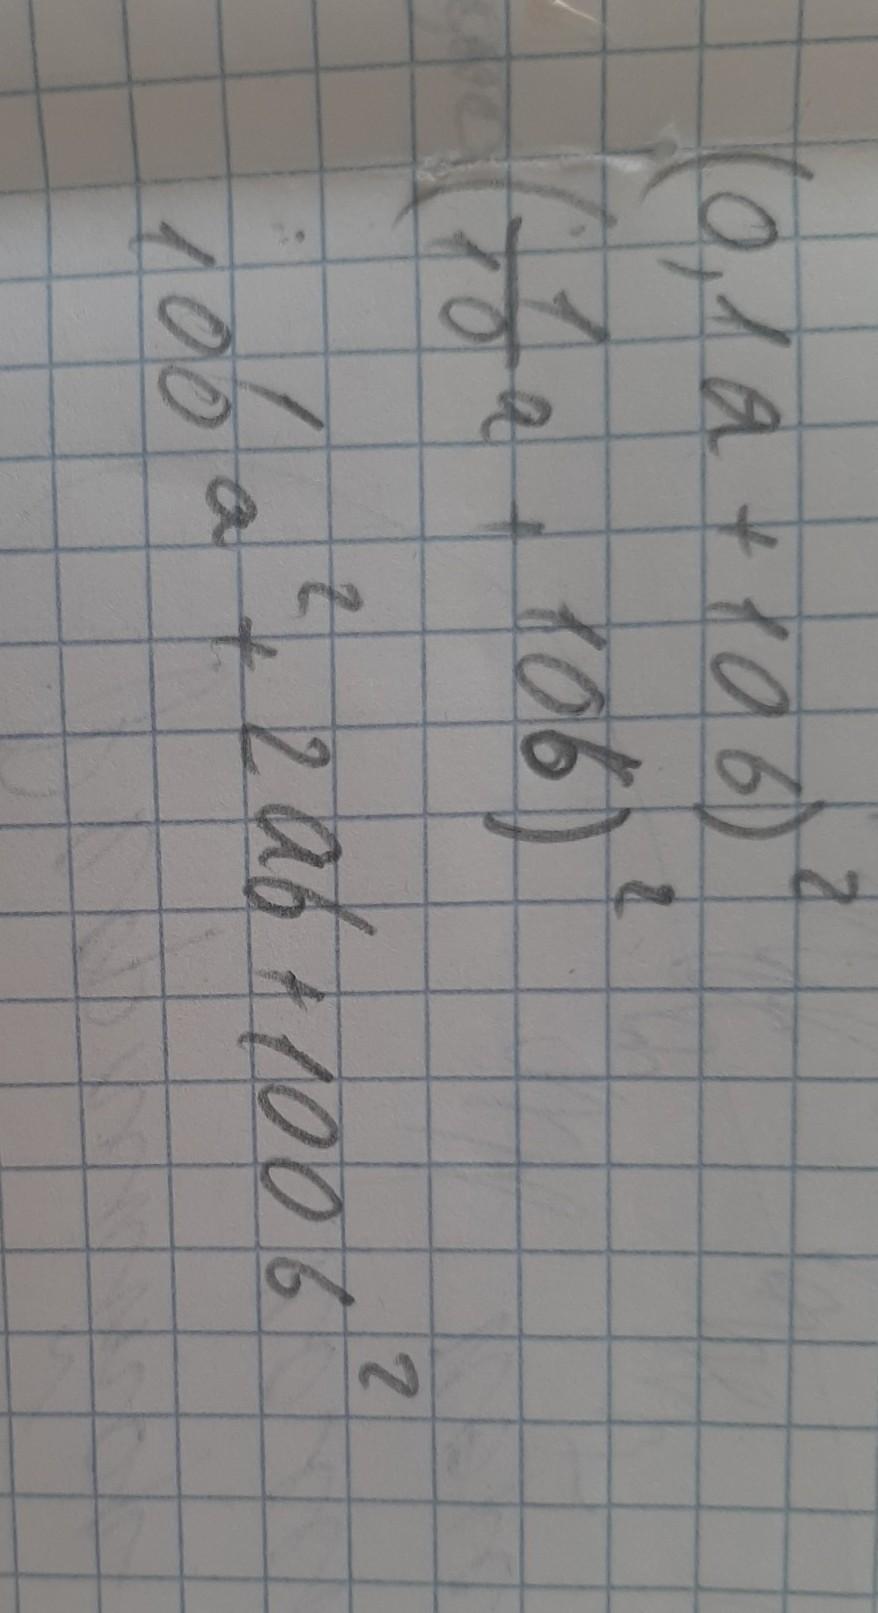 (0,1a + 10b)²
(1/10 a + 10b)²
1/100 a² + 2ab + 100b²